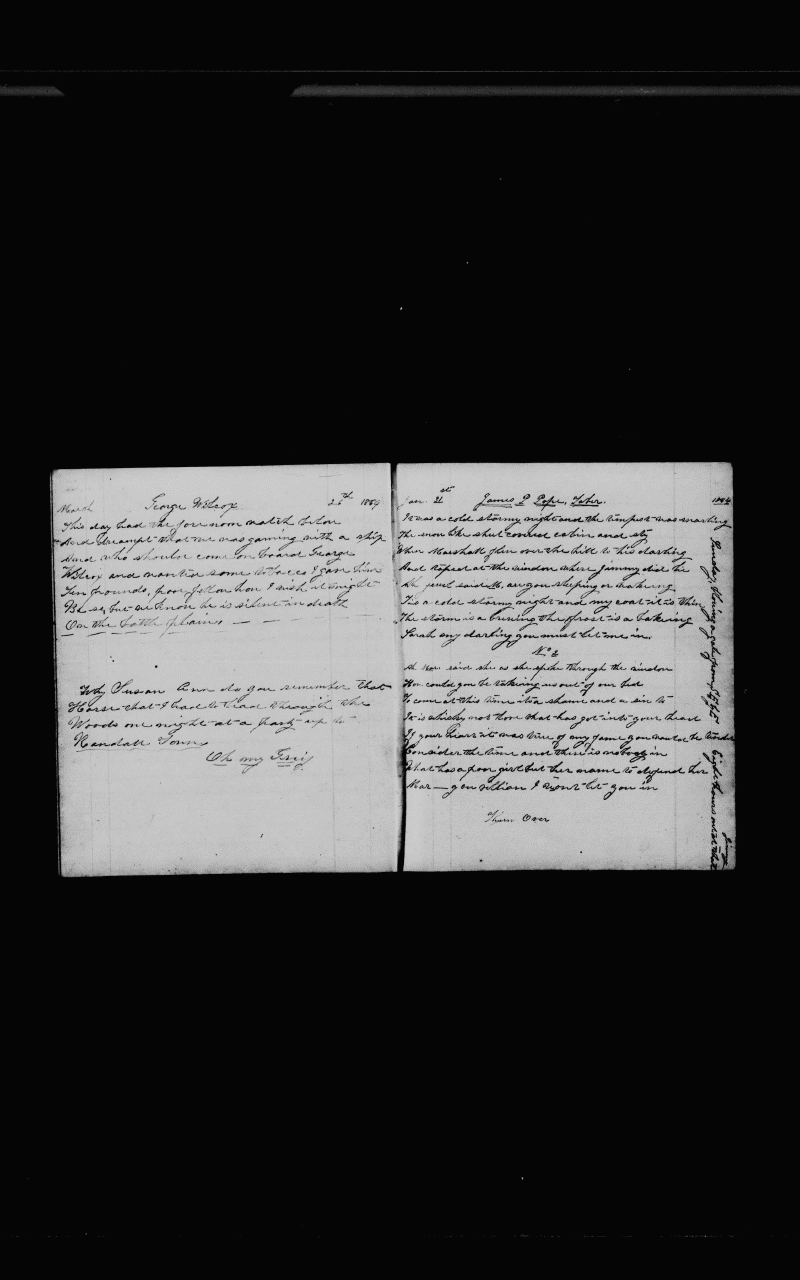 March George Wilcox 2th 1884
This day had the forenoon watch below
And dreampt that we was gaming with a ship
And who should come on board George
Wilcox and wanted some tobacco I gave him
Ten pounds, poor fellow how I wish it might
Be so, but we know he is silent in death
On the battle plains
Why Susan Ann do you remember that
Horse that I had to lead through the
Woods one night at a party up to
Kendall Town
Oh my
Jan. 21st James P Pope, Taber. 1884
It was a cold stormy night and the tempest was snarling
The snow the sheet covered cabin and sty
When Marshall flew over the hill to his darling
And taped at the window where Jimmy did lie
Ah jewel said he, are you sleeping or waking
Tis a cold stormy night and my coat it is thin
The storm is a bruing the frost is a bakeing
Sarah my darling you must let me in.
No 2
Ah Now said she as she spoke through the window
How could you be takeing us out of our bed
To come at this time its a shame and a sin to
It is whisky not love that has got into your head
If your heart it was true of my fame you would be tender
Consider the time and there is nobody in
What has a poor girl but her name to defend her
Mar— you villian I wont let you in
Thurn Over
Sunday, blowing a gale from Eight hours out at the